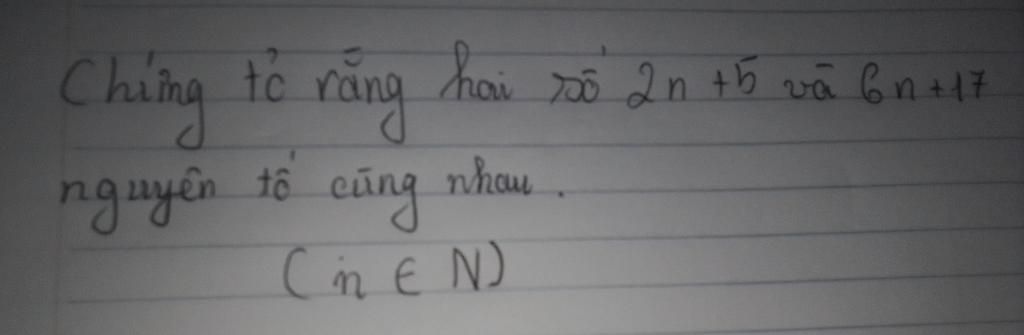 Chứng tỏ rằng hai số 2n + 5 và 6n + 17
nguyên tố cùng nhau.
(n ∈ N)